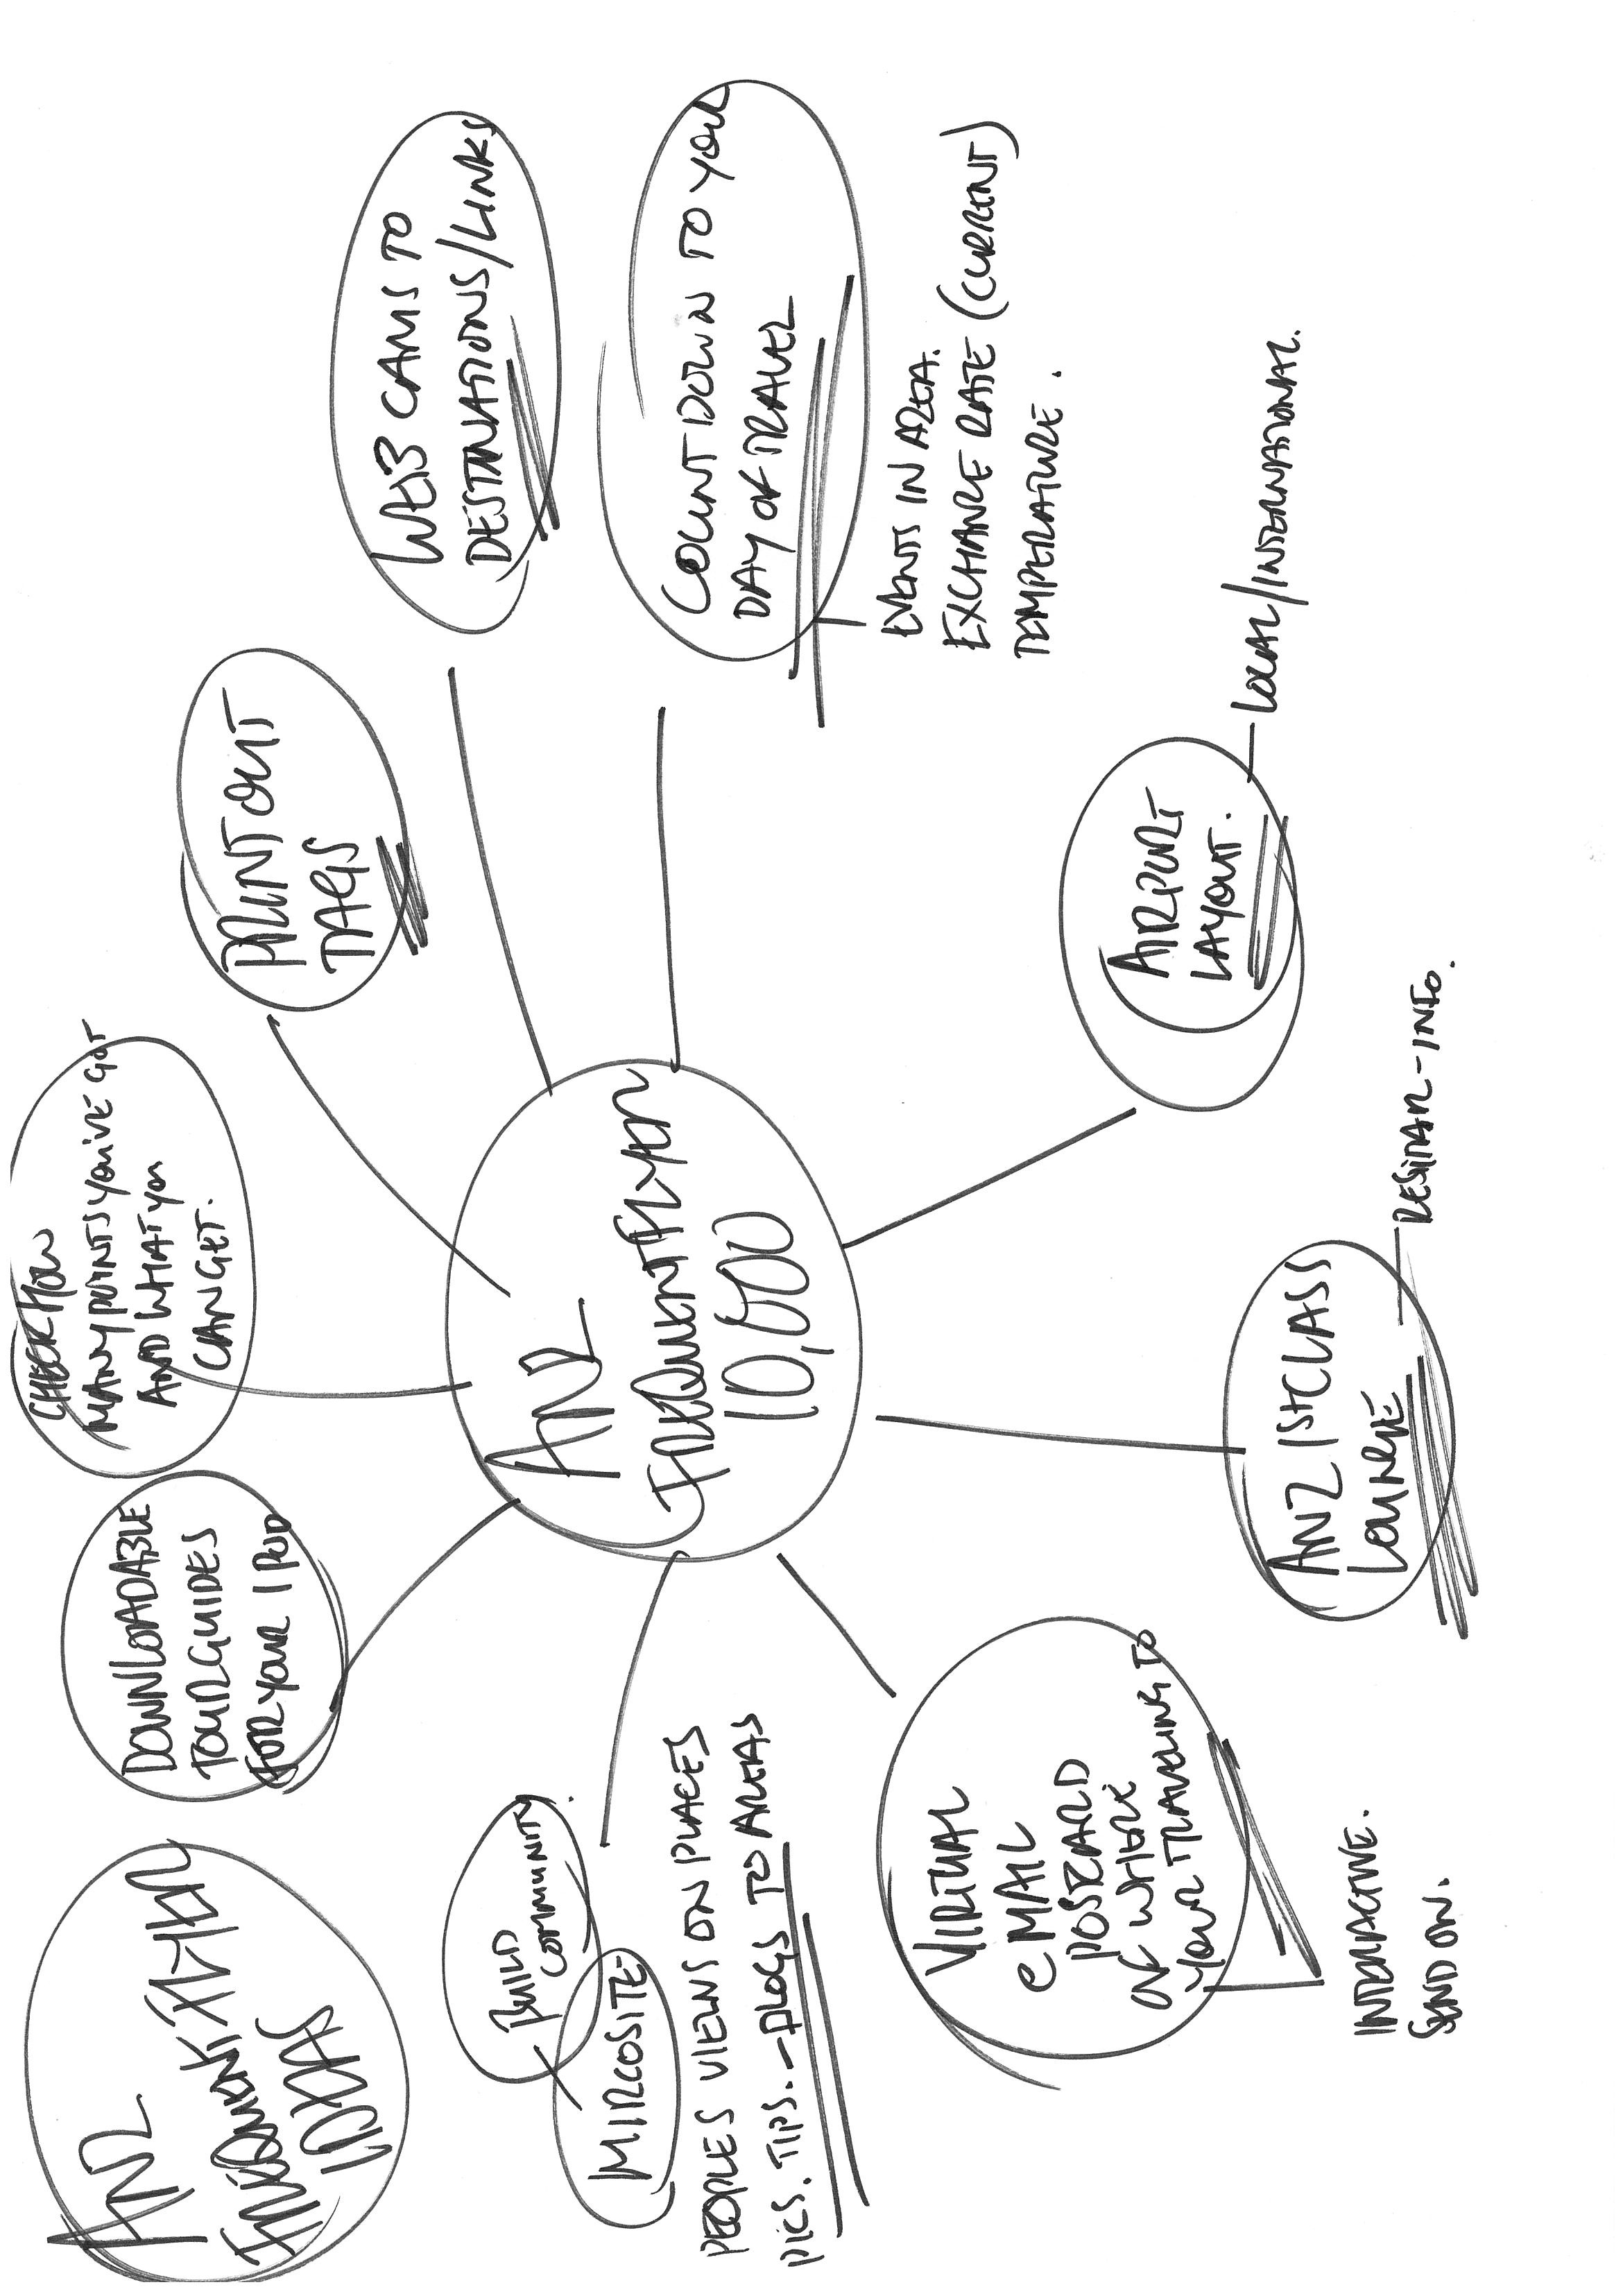 ANZ
FREQUENT FLYER
IDEAS
DOWNLOADABLE
TOUR GUIDES
FOR YOUR I POD
CHECK HOW
MANY POINTS YOU'VE GOT
AND WHAT YOU
CAN GET.
PRINT OUT
TAGS
WEB CAMS TO
DESTINATIONS/LINKS
BUILD
COMMUNITY.
MIRCOSITE-
PEOPLES VIEWS ON PLACES
PICS. TIPS. - BLOGS TO AREAS
ANZ
FREQUENT FLYER
10,000
COUNT DOWN TO YOUR
DAY OF TRAVEL
EVENTS IN AREA.
EXCHANGE RATE (CURRENT)
TEMPERATURE.
VIRTUAL
eMAIL
POSTCARD
OF WHERE
YOUR TRAVELING TO
INTERACTIVE.
SEND ON.
ANZ 1st CLASS
LOUNGE
- INFO.
AIRPORT
LAYOUT.
LOCAL/INTERNATIONAL.